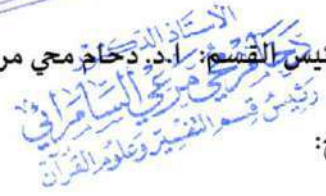 رئيس القسم: ا.د. دحام محي مر
الأستاذ الدكتور
دحام محي مرعي السامرائي
رئيس قسم التفسير وعلوم القرآن